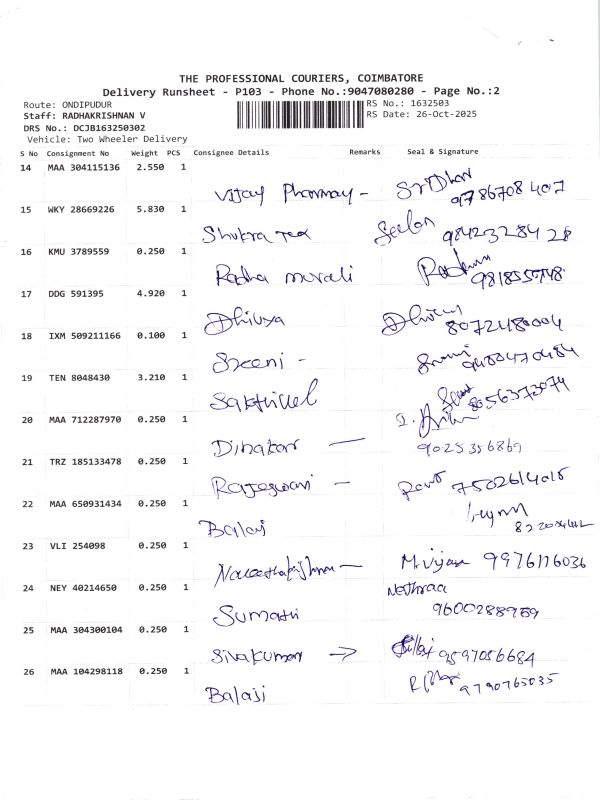 THE PROFESSIONAL COURIERS, COIMBATORE
Delivery Runsheet - P103 - Phone No.:9047080280 - Page No.:2
Route: ONDIPUDUR
RS No.: 1632503
Staff: RADHAKRISHNAN V
RS Date: 26-Oct-2025
DRS No.: DCJB163250302
Vehicle: Two Wheeler Delivery
S No Consignment No Weight PCS Consignee Details Remarks Seal & Signature
14 MAA 304115136 2.550 1
Vijay Pharmay - Sridhar
9786708407
15 WKY 28669226 5.830 1
Shukra Tex
9842328428
16 KMU 3789559 0.250 1
Radha murali
17 DDG 591395 4.920 1
Dhivya
8072480004
18 IXM 509211166 0.100 1
Sreeni -
9480470484
19 TEN 8048430 3.210 1
Sakthivel
8056373074
20 MAA 712287970 0.250 1
Dinakar —
9025356869
21 TRZ 185133478 0.250 1
Rajeswari -
7502614015
22 MAA 650931434 0.250 1
Balaji
23 VLI 254098 0.250 1
M.Vijaya 9976176036
24 NEY 40214650 0.250 1
Nethraa
Sumathi
9600288969
25 MAA 304300104 0.250 1
Sivakumar → 9597056684
26 MAA 104298118 0.250 1
Balaji
9790765035